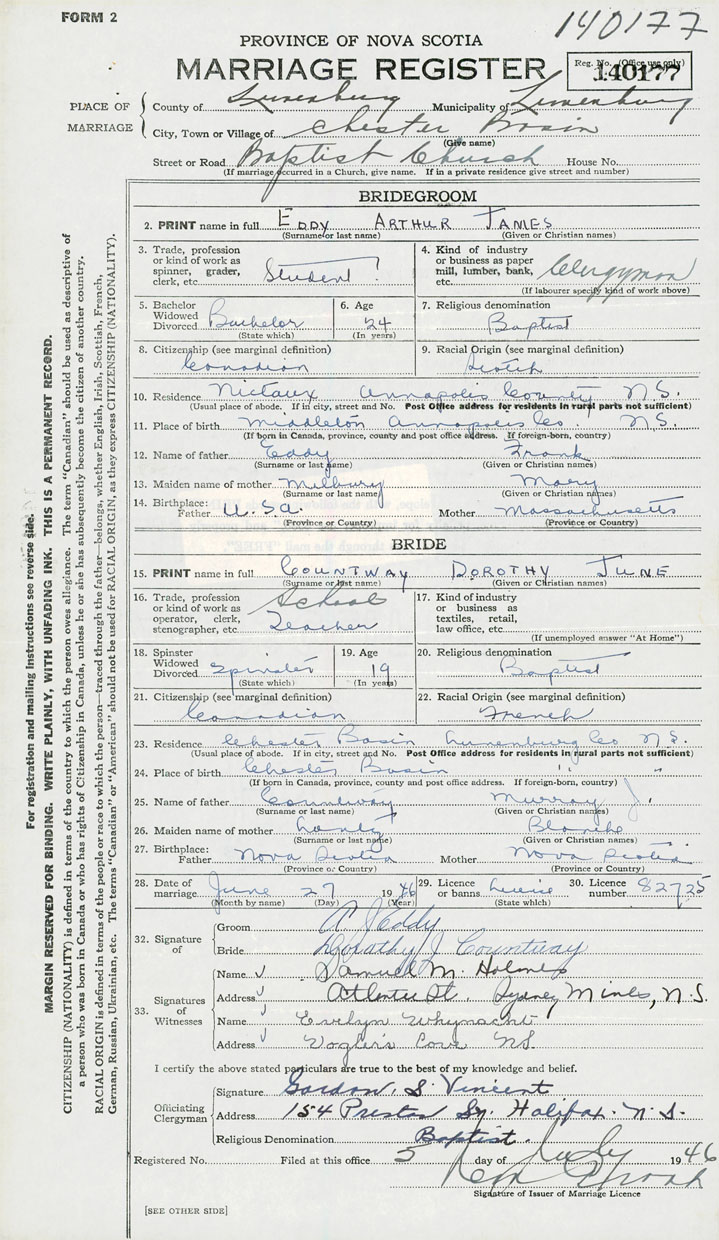 FORM 2
140177
PROVINCE OF NOVA SCOTIA
MARRIAGE REGISTER
Reg. No. (Office use only)
140177
PLACE OF MARRIAGE
County of Lunenburg Municipality of Lunenburg
City, Town or Village of Chester Basin
(Give name)
Street or Road Baptist Church House No.
(If marriage occurred in a Church, give name. If in a private residence give street and number)
BRIDEGROOM
2. PRINT name in full EDDY ARTHUR JAMES
(Surname or last name) (Given or Christian names)
3. Trade, profession or kind of work as spinner, grader, clerk, etc. Student
4. Kind of industry or business as paper mill, lumber, bank, etc. Clergyman
(If labourer specify kind of work above)
5. Bachelor Widowed Divorced Bachelor
(State which)
6. Age 24
(In years)
7. Religious denomination
Baptist
8. Citizenship (see marginal definition)
Canadian
9. Racial Origin (see marginal definition)
Scotch
10. Residence Nictaux Annapolis County N.S.
(Usual place of abode. If in city, street and No. Post Office address for residents in rural parts not sufficient)
11. Place of birth Middleton Annapolis Co. N.S.
(If born in Canada, province, county and post office address. If foreign-born, country)
12. Name of father Eddy Frank
(Surname or last name) (Given or Christian names)
13. Maiden name of mother Milbury Mary
(Surname or last name) (Given or Christian names)
14. Birthplace: Father U.S.A. Mother Massachusetts
(Province or Country) (Province or Country)
BRIDE
15. PRINT name in full COUNTWAY DOROTHY JUNE
(Surname or last name) (Given or Christian names)
16. Trade, profession or kind of work as operator, clerk, stenographer, etc. School Teacher
17. Kind of industry or business as textiles, retail, law office, etc.
(If unemployed answer "At Home")
18. Spinster Widowed Divorced Spinster
(State which)
19. Age 19
(In years)
20. Religious denomination
Baptist
21. Citizenship (see marginal definition)
Canadian
22. Racial Origin (see marginal definition)
French
23. Residence Chester Basin Lunenburg Co N.S.
(Usual place of abode. If in city, street and No. Post Office address for residents in rural parts not sufficient)
24. Place of birth Chester Basin " "
(If born in Canada, province, county and post office address. If foreign-born, country)
25. Name of father Countway Murray J.
(Surname or last name) (Given or Christian names)
26. Maiden name of mother Blanche
(Surname or last name) (Given or Christian names)
27. Birthplace: Father Nova Scotia Mother Nova Scotia
(Province or Country) (Province or Country)
28. Date of marriage June 27 1946
(Month by name) (Day) (Year)
29. Licence or banns licence
(State which)
30. Licence number 82725
32. Signature of
Groom A. J. Eddy
Bride Dorothy J Countway
33. Signatures of Witnesses
Name Samuel M. Holmes
Address Atlantic St. Sydney Mines, N.S.
Name Evelyn Whynacht
Address Vogler's Cove N.S.
I certify the above stated particulars are true to the best of my knowledge and belief.
Officiating Clergyman
Signature Gordon S Vincent
Address 154 Preston St. Halifax. N.S.
Religious Denomination Baptist.
Registered No. Filed at this office 5 day of July 1946
Signature of Issuer of Marriage Licence
[SEE OTHER SIDE]
For registration and mailing instructions see reverse side.
MARGIN RESERVED FOR BINDING. WRITE PLAINLY, WITH UNFADING INK. THIS IS A PERMANENT RECORD.
CITIZENSHIP (NATIONALITY) is defined in terms of the country to which the person owes allegiance. The term "Canadian" should be used as descriptive of
a person who was born in Canada or who has rights of Citizenship in Canada, unless he or she has subsequently become the citizen of another country.
RACIAL ORIGIN is defined in terms of the people or race to which the person—traced through the father—belongs, whether English, Irish, Scottish, French,
German, Russian, Ukrainian, etc. The terms "Canadian" or "American" should not be used for RACIAL ORIGIN, as they express CITIZENSHIP (NATIONALITY).